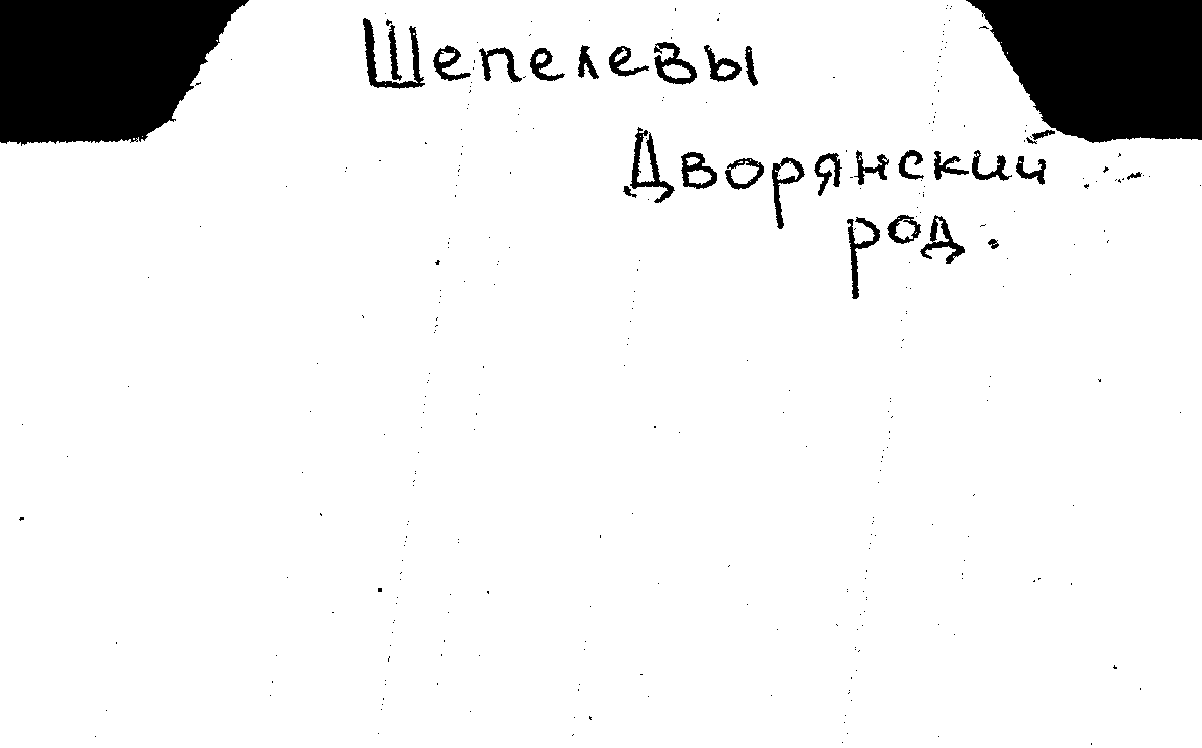 Шепелевы
Дворянский
род.